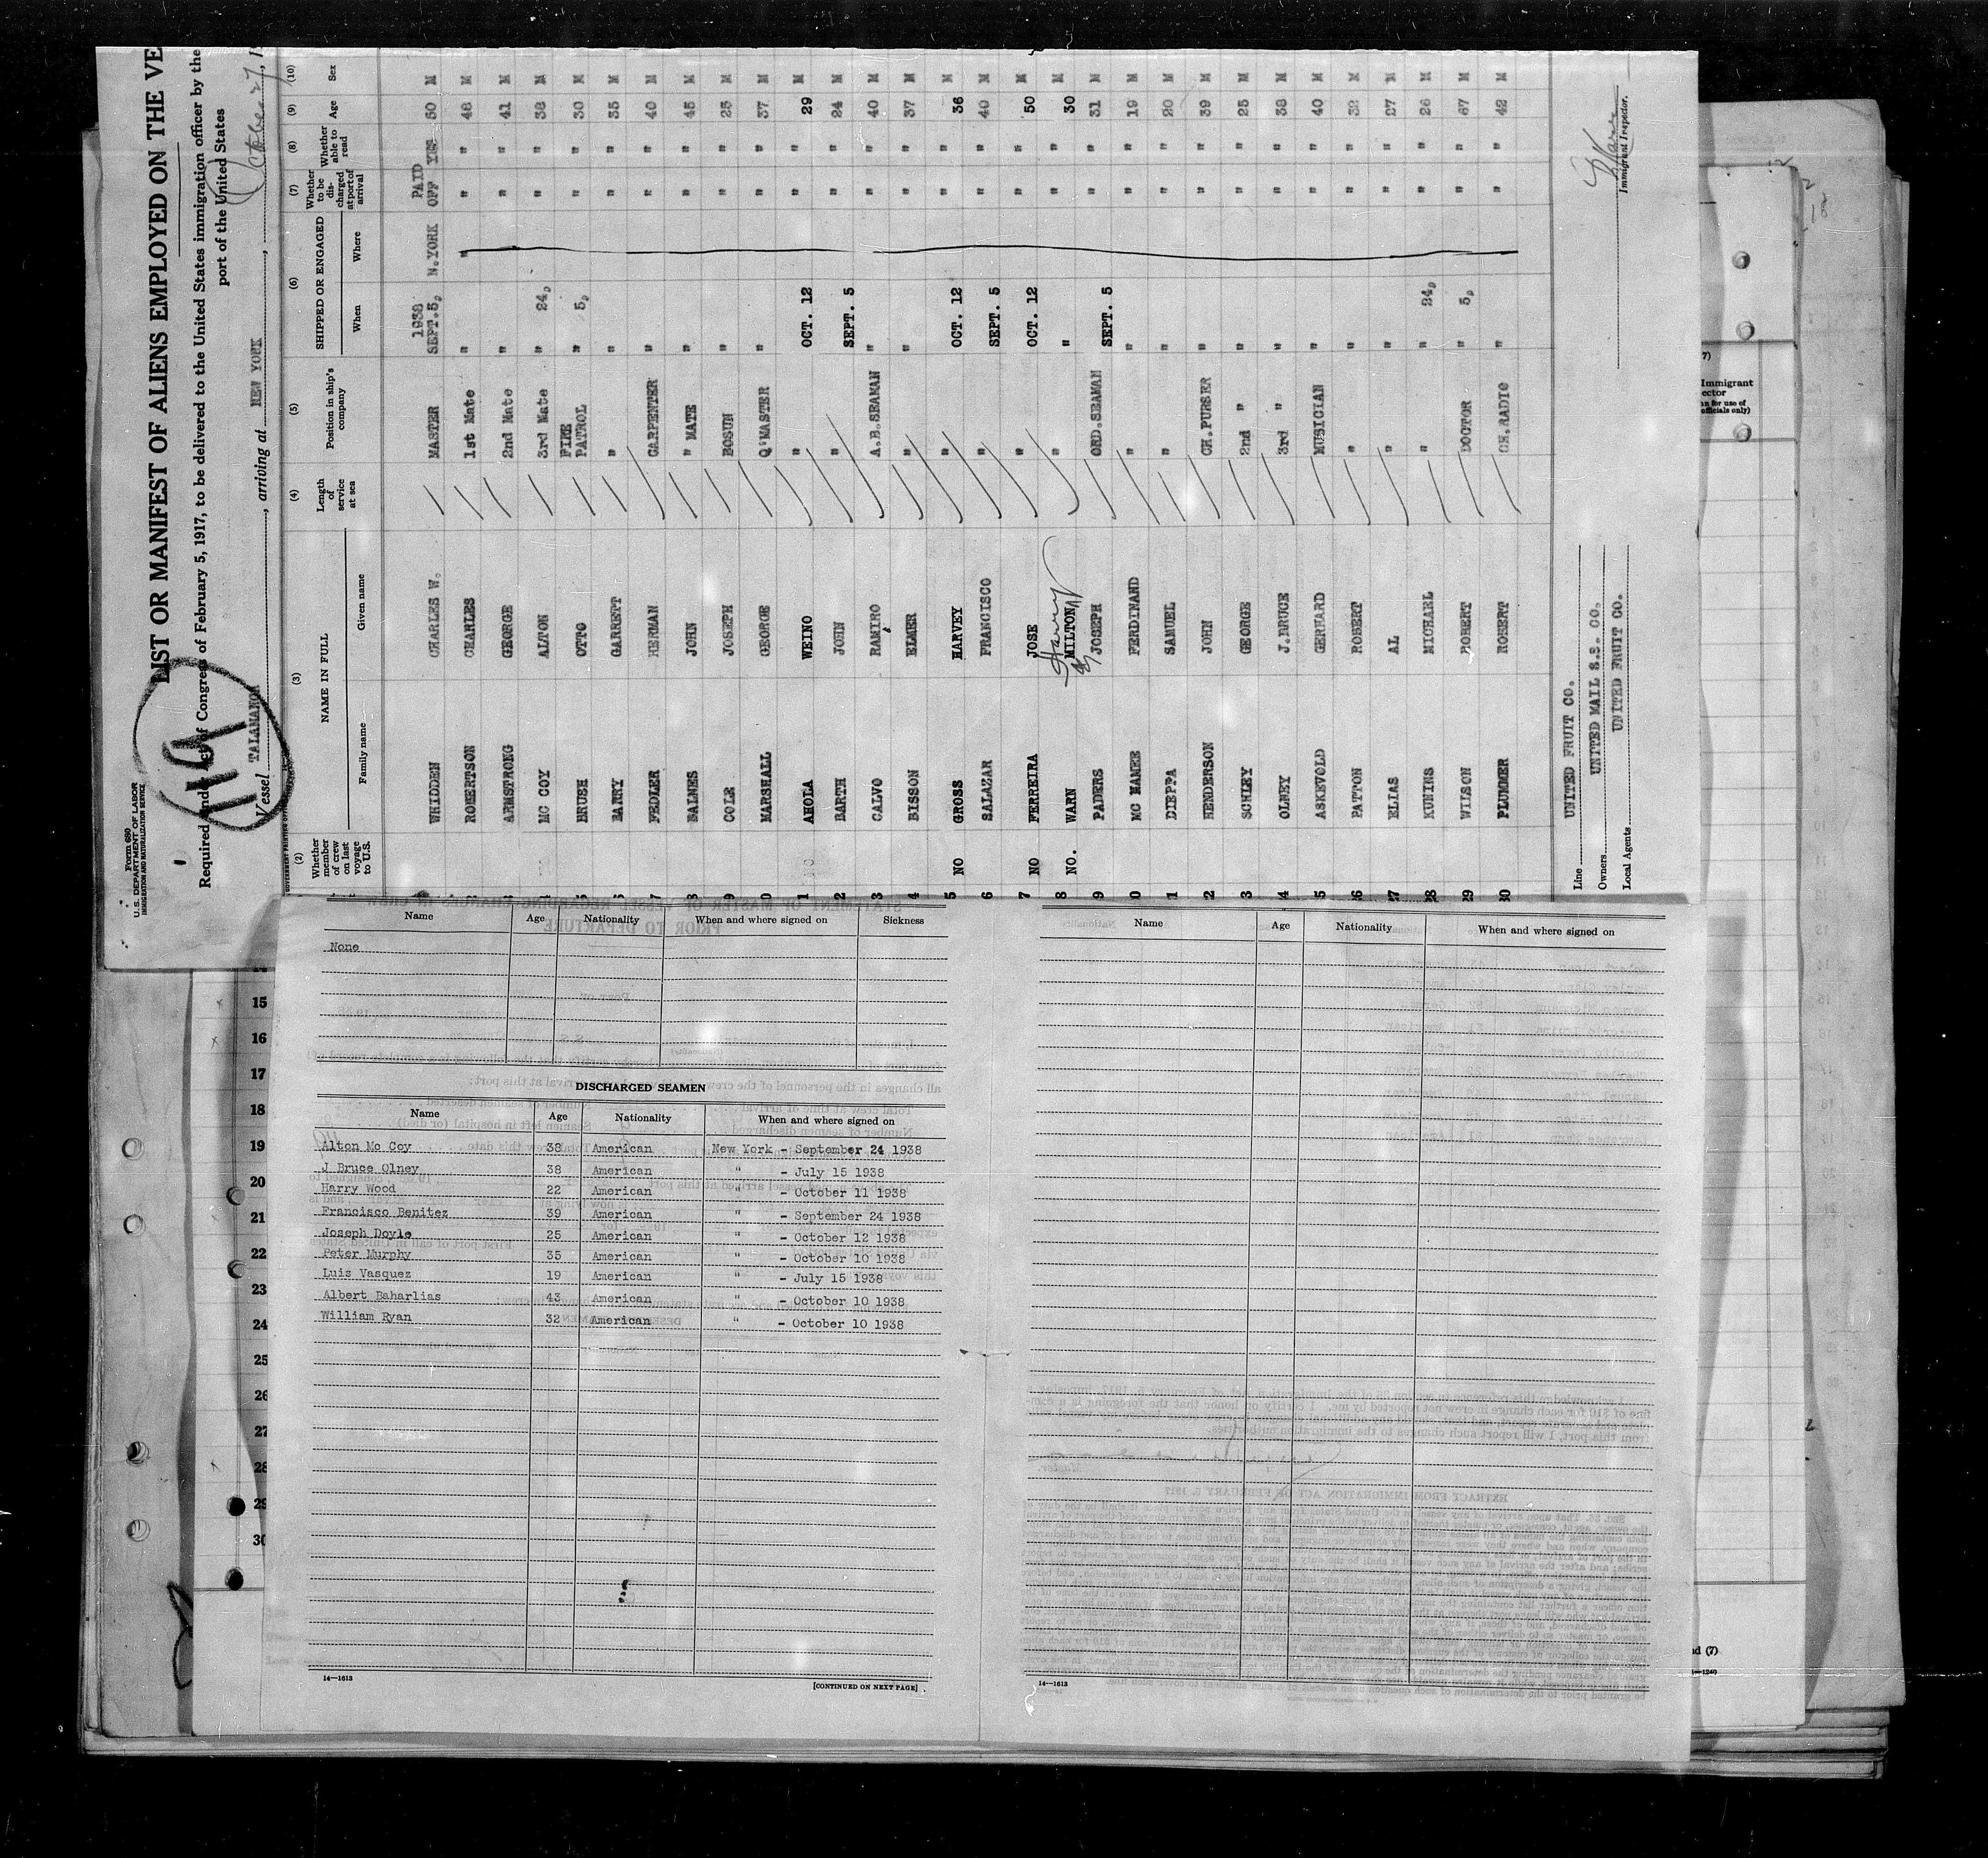 Form 680
U.S. DEPARTMENT OF LABOR
IMMIGRATION AND NATURALIZATION SERVICE
LIST OR MANIFEST OF ALIENS EMPLOYED ON THE VE
Required under Act of Congress of February 5, 1917, to be delivered to the United States immigration officer by the
port of the United States
Vessel TALAMANCA, arriving at NEW YORK, October 27, 1
(2) (3) (4) (5) (6) (7) (8) (9) (10)
Whether member of crew on last voyage to U.S. NAME IN FULL Length of service at sea Position in ship's company SHIPPED OR ENGAGED Whether to be discharged at port of arrival Whether able to read Age Sex
Family name Given name When Where
WHIDDEN CHARLES W. MASTER 1938 SEPT.5, N.YORK PAID OFF YES 50 M
ROBERTSON CHARLES 1st Mate " " " " 48 M
ARMSTRONG GEORGE 2nd Mate " " " 41 M
MC COY ALTON 3rd Mate " 24, " " 38 M
5 BRUSH OTTO FIRE PATROL " 5, " " 30 M
6 BARRY GARRETT " " " " 35 M
7 FEDLER HERMAN CARPENTER " " " 40 M
8 BALNES JOHN " MATE " " " 45 M
9 COLE JOSEPH BOSUN " " " 25 M
0 MARSHALL GEORGE Q'MASTER " " " 37 M
1 AHOLA WEINO " OCT. 12 " " 29 M
2 BARTH JOHN " SEPT. 5 " " 24 M
3 CALVO RAMIRO A.B.SEAMAN " " " 40 M
4 BISSON ELMER " " " " 37 M
5 NO GROSS HARVEY " OCT. 12 " " 36 M
6 SALAZAR FRANCISCO " SEPT. 5 " " 40 M
7 NO FERREIRA JOSE " OCT. 12 " " 50 M
8 NO. WARN MILTON Harvey " " " " 30 M
9 PADERS JOSEPH ORD.SEAMAN SEPT. 5 " " 31 M
0 MC NAMEE FERDINAND " " " " 19 M
1 DIEPPA SAMUEL " " " " 20 M
2 HENDERSON JOHN CH.PURSER " " " 39 M
3 SCHLEY GEORGE 2nd " " " " 25 M
4 OLNEY J.BRUCE 3rd " " " " 38 M
5 ASKEVOLD GERHARD MUSICIAN " " " 40 M
26 PATTON ROBERT " " " " 32 M
27 ELIAS AL " " " " 27 M
28 KUNINS MICHAEL " " 24, " " 26 M
29 WILSON ROBERT DOCTOR " 5, " " 67 M
30 PLUMMER ROBERT CH.RADIO " " " 42 M
Line UNITED FRUIT CO.
Owners UNITED MAIL S.S. CO.
Local Agents UNITED FRUIT CO.
Immigrant Inspector.
Name Age Nationality When and where signed on Sickness
None
DISCHARGED SEAMEN
Name Age Nationality When and where signed on
Alton Mc Coy 38 American New York - September 24 1938
J Bruce Olney 38 American " - July 15 1938
Harry Wood 22 American " - October 11 1938
Francisco Benitez 39 American " - September 24 1938
Joseph Doyle 25 American " - October 12 1938
Peter Murphy 35 American " - October 10 1938
Luis Vasquez 19 American " - July 15 1938
Albert Baharlias 43 American " - October 10 1938
William Ryan 32 American " - October 10 1938
14—1613
[CONTINUED ON NEXT PAGE]
Name Age Nationality When and where signed on
14—1613
15
16
17
18
19
20
21
22
23
24
25
26
27
28
29
30
7)
Immigrant
ector
n for use of
officials only)
nd (7)
—1240